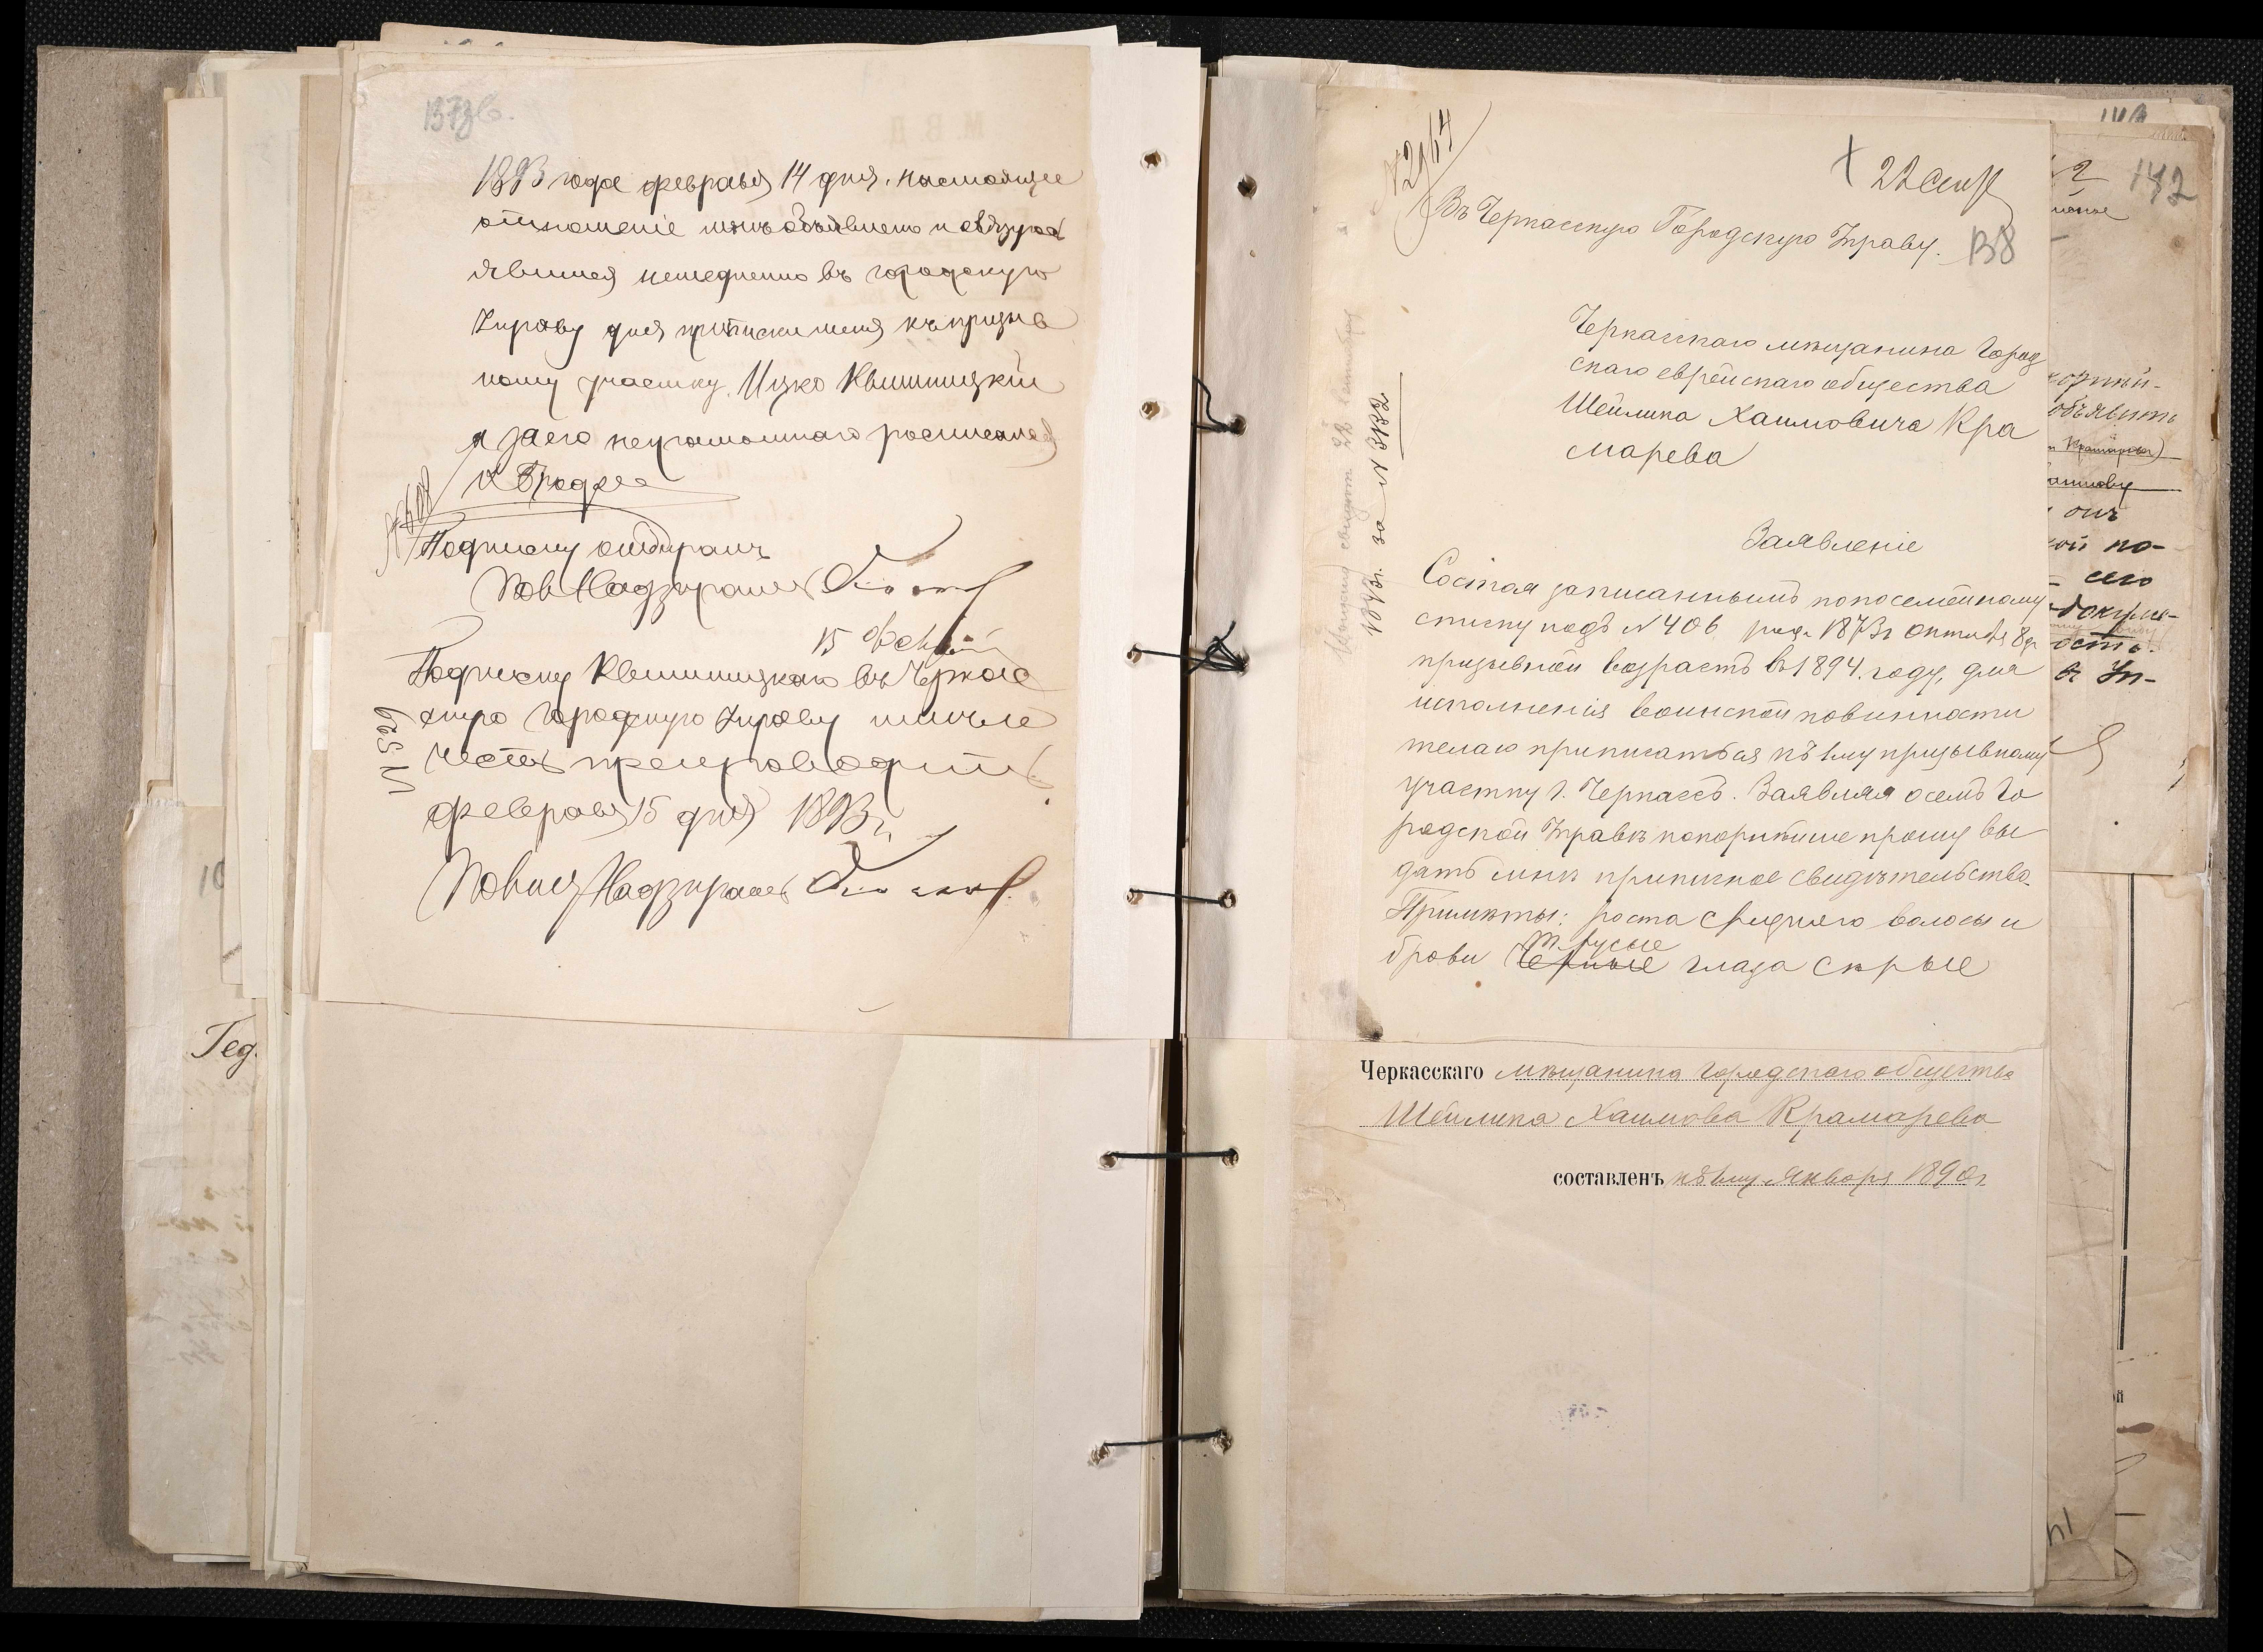 137зв.
1893 года февраля 14 дня. настоящее
отношеніе мнѣ объявлено и обязуюсь
явится немедленно въ городскую
Управу для приписки меня къ призыв
ному участку. Ицко Квитницкій
а за его неграмотнаго росписался
Подписку отбиралъ
Пол Надзиратель
15 Фев
Подписку Квитницкаго въ Черкас
скую городскую Управу имѣю
честь препроводить
февраля 15 дня 1893 г.
Полиц Надзиратель
N 529
Гед.
N 2964
+ 22 Сент
Въ Черкасскую Городскую Управу.
138
Черкасскаго мѣщанина Город
скаго еврейскаго общества
Шейлика Хаимовича Кра
марева
Заявленіе
Состоя записаннымъ по посемейному
списку подъ N 406 род. 1873г Октября 8 дн
призывной возрастъ въ 1894 году, для
исполненія воинской повинности
желаю приписаться къ 1му призывному
участку г. Черкассъ. Заявляя о семъ Го
родской Управѣ покорнѣише прошу вы
дать мнѣ приписное свидѣтельство.
Примѣты: роста средняго волосы и
т. русые
брови Черные глаза сѣрые
Выдано свидѣт 22 сентября
1893г. за N 3132
Черкасскаго мѣщанина городскаго общества
Шейлика Хаимова Крамарева
составленъ къ 1му Января 1890г
142
объявить
онъ
кой по-
сего
докуме-
ость.
Уп-
141